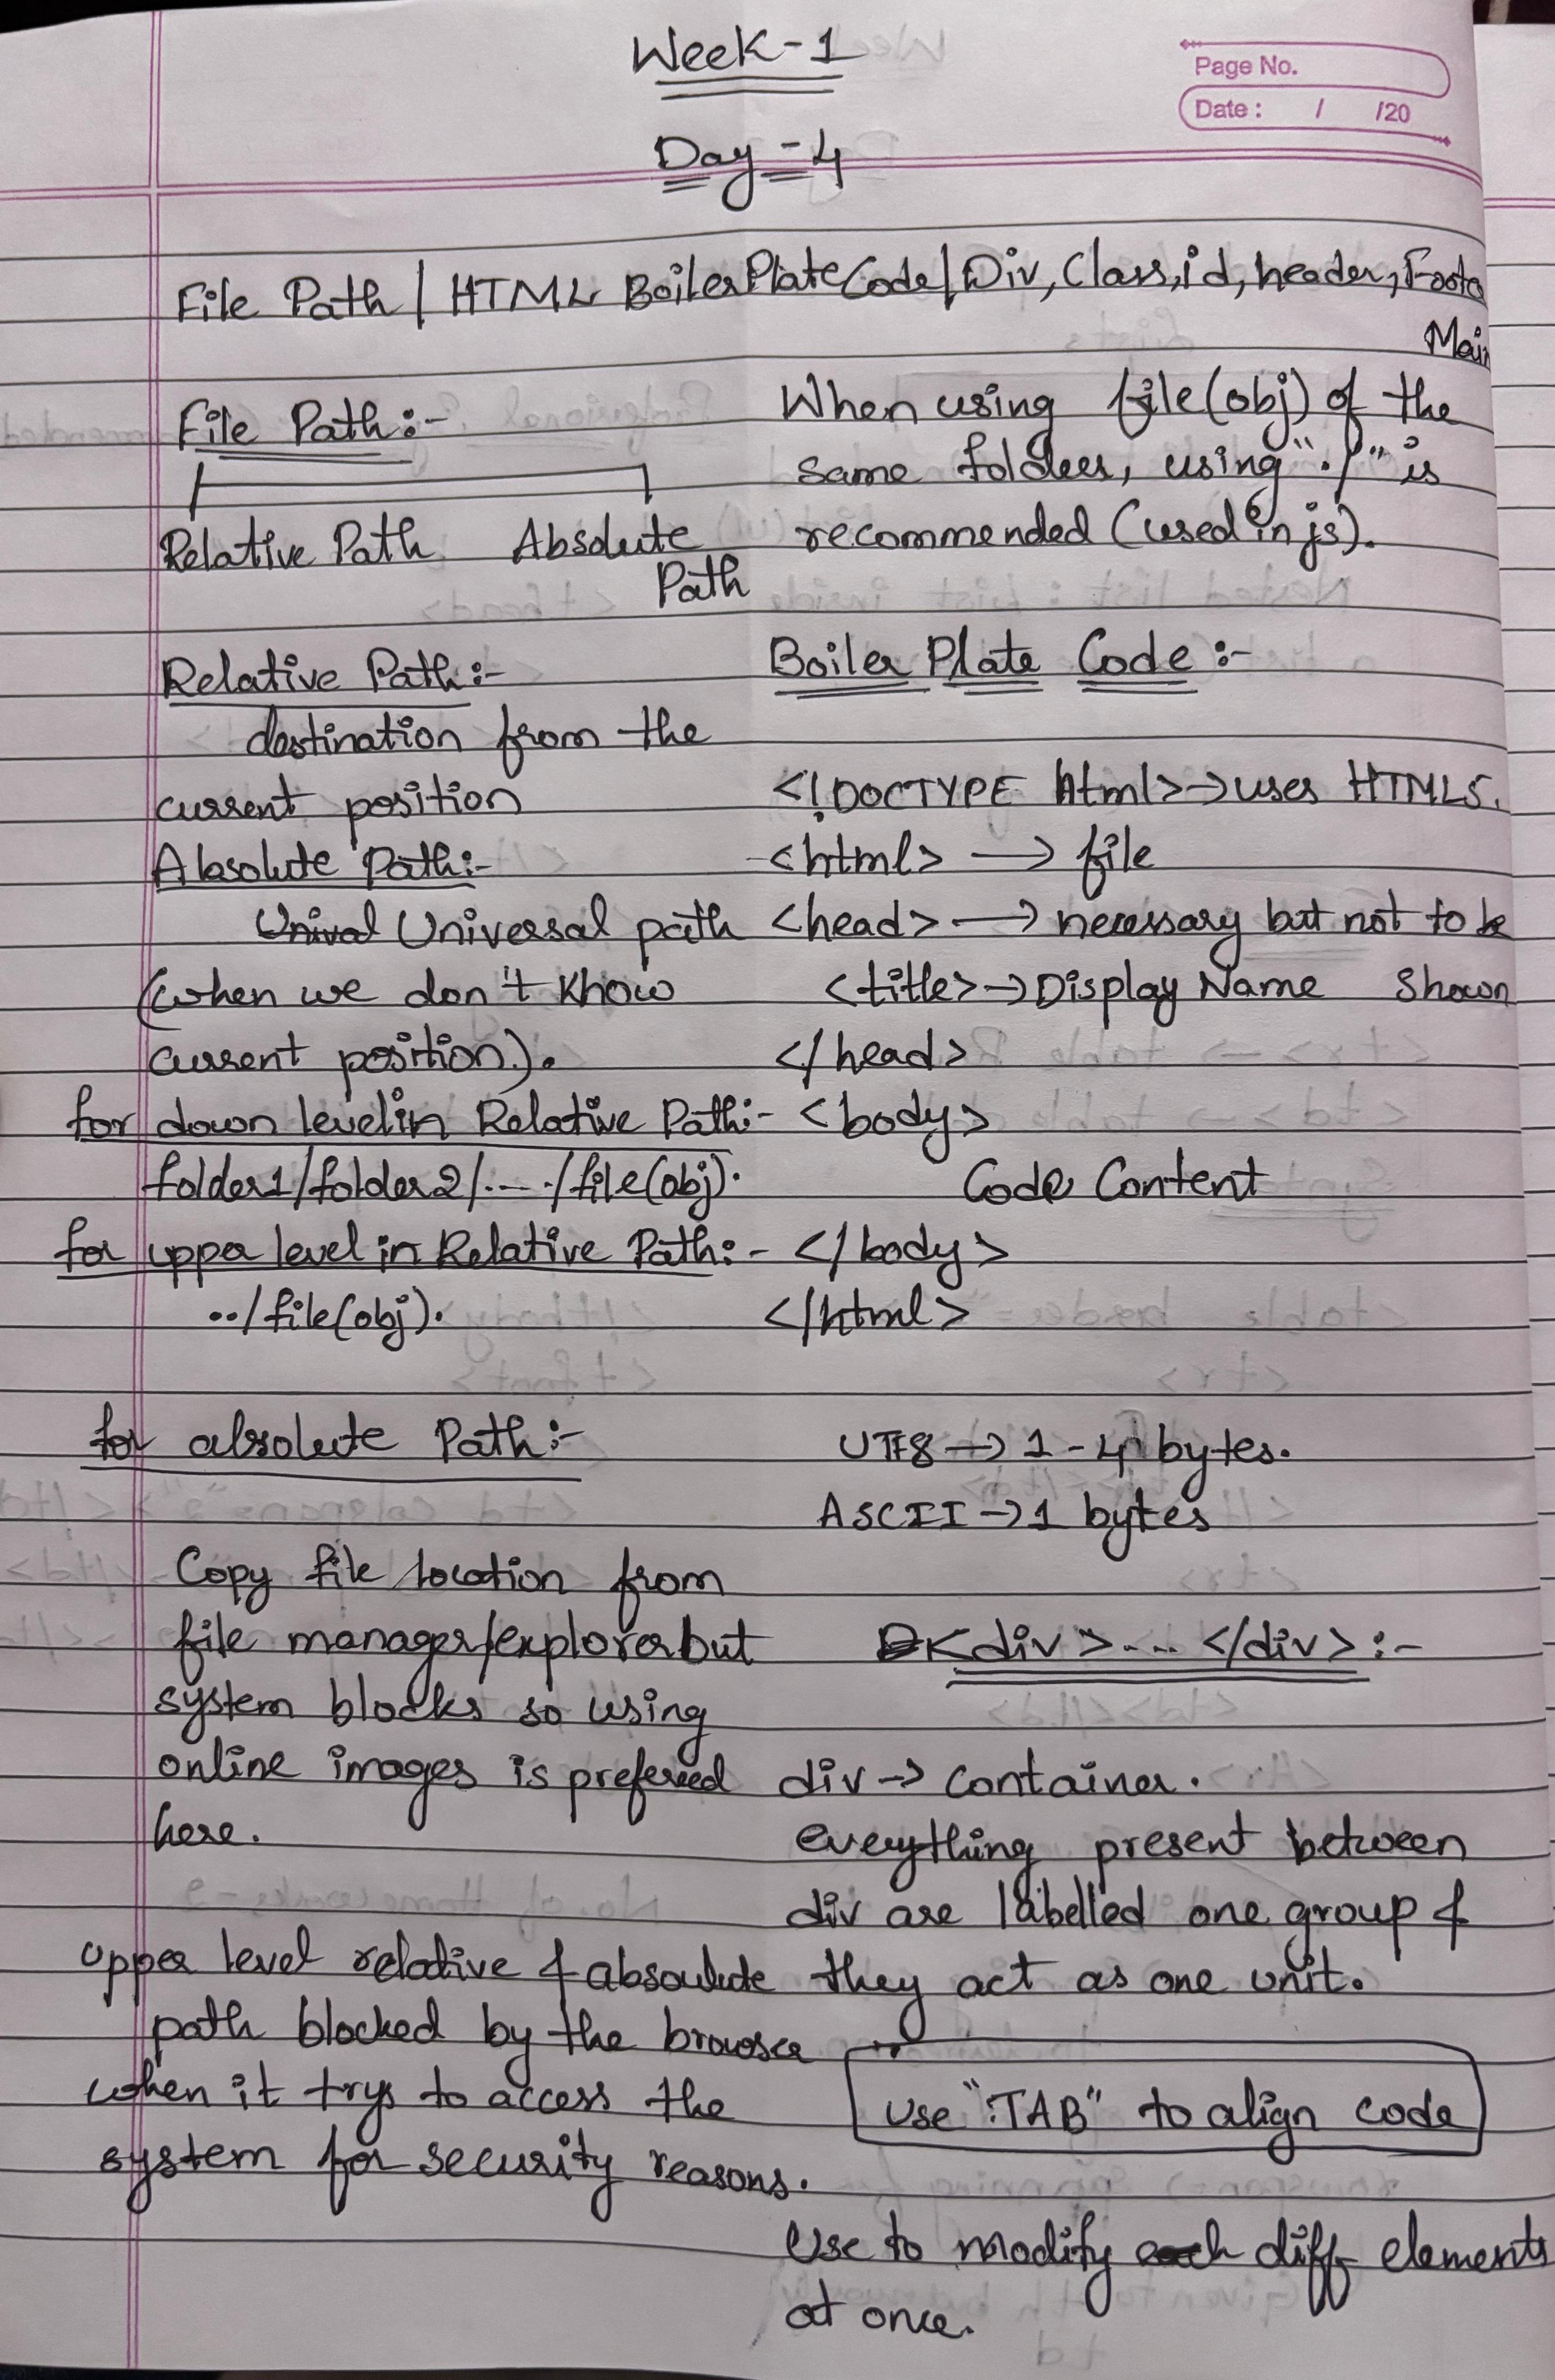 Week-1
Page No.
Date : / /20
Day-4
File Path | HTML BoilerPlate Code | Div, Class, id, header, Foote
Main
File Path:-
Relative Path Absolute
Path
Relative Path:-
destination from the
current position
Absolute Path:-
Unival Universal path
(when we don't know
current position).
for down level in Relative Path:-
folder1/folder2/..../file(obj).
for upper level in Relative Path:-
../file(obj).
for absolute Path:-
Copy file location from
file manager/explorer but
system blocks so using
online images is prefered
here.
upper level relative & absoulute
path blocked by the browser
when it trys to access the
system for security reasons.
When using file(obj) of the
same folders, using "./" is
recommended (used in js).
Boiler Plate Code :-
<!DOCTYPE html> → uses HTML5.
<html> → file
<head> → necessary but not to be
<title> → Display Name Shown
</head>
<body>
Code Content
</body>
</html>
UTF8 → 1-4 bytes.
ASCII → 1 bytes
<div>... </div> :-
div → container.
everything present between
div are labelled one group &
they act as one unit.
use "TAB" to align code
Use to modify each diff elements
at once.